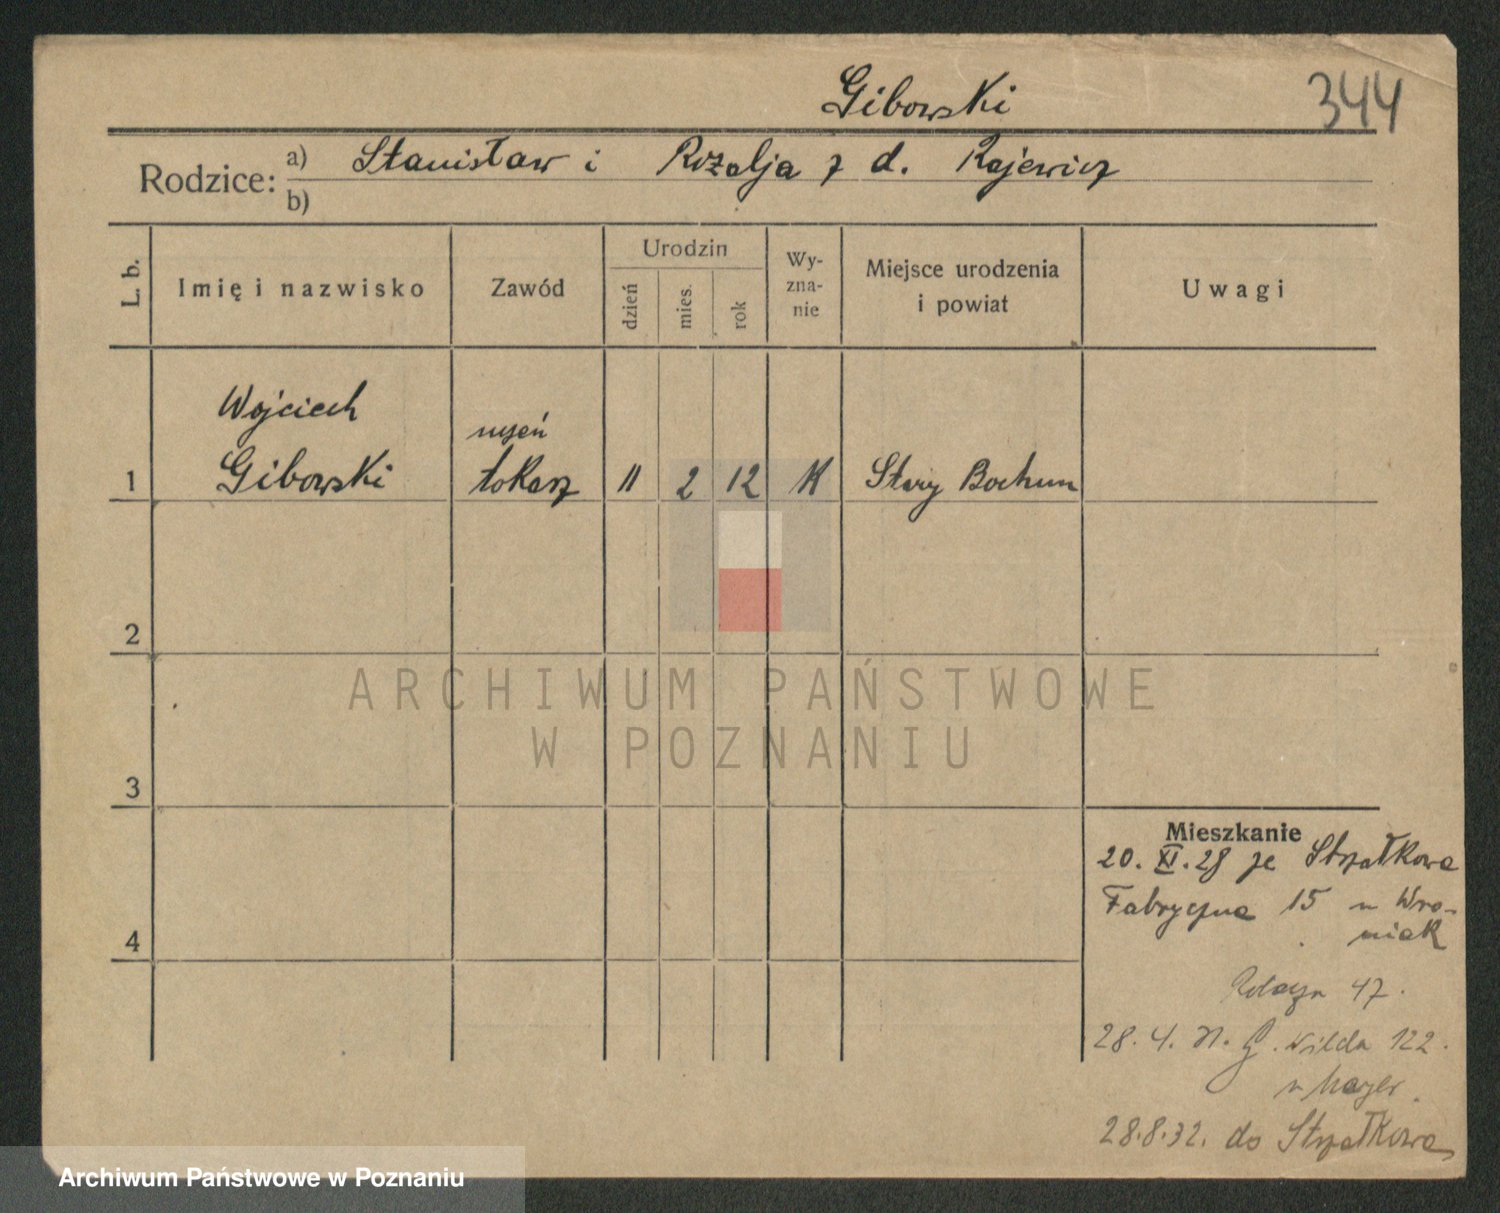 Gibowski 344
Rodzice: a) Stanisław i Rozalja z d. Rajewicz
b)
L. b. Imię i nazwisko Zawód Urodzin dzień mies. rok Wy-zna-nie Miejsce urodzenia i powiat Uwagi
Wojciech
uczeń
1 Gibowski tokarz 11 2 12 K Stary Bochum
2
ARCHIWUM PAŃSTWOWE
W POZNANIU
3
Mieszkanie
20. XI. 28 ze Strzałkowa
Fabryczna 15 u Wro-
niak
4
47.
28. 4. G. Wilda 122.
u
28.8.32. do Strzałkowa
Archiwum Państwowe w Poznaniu